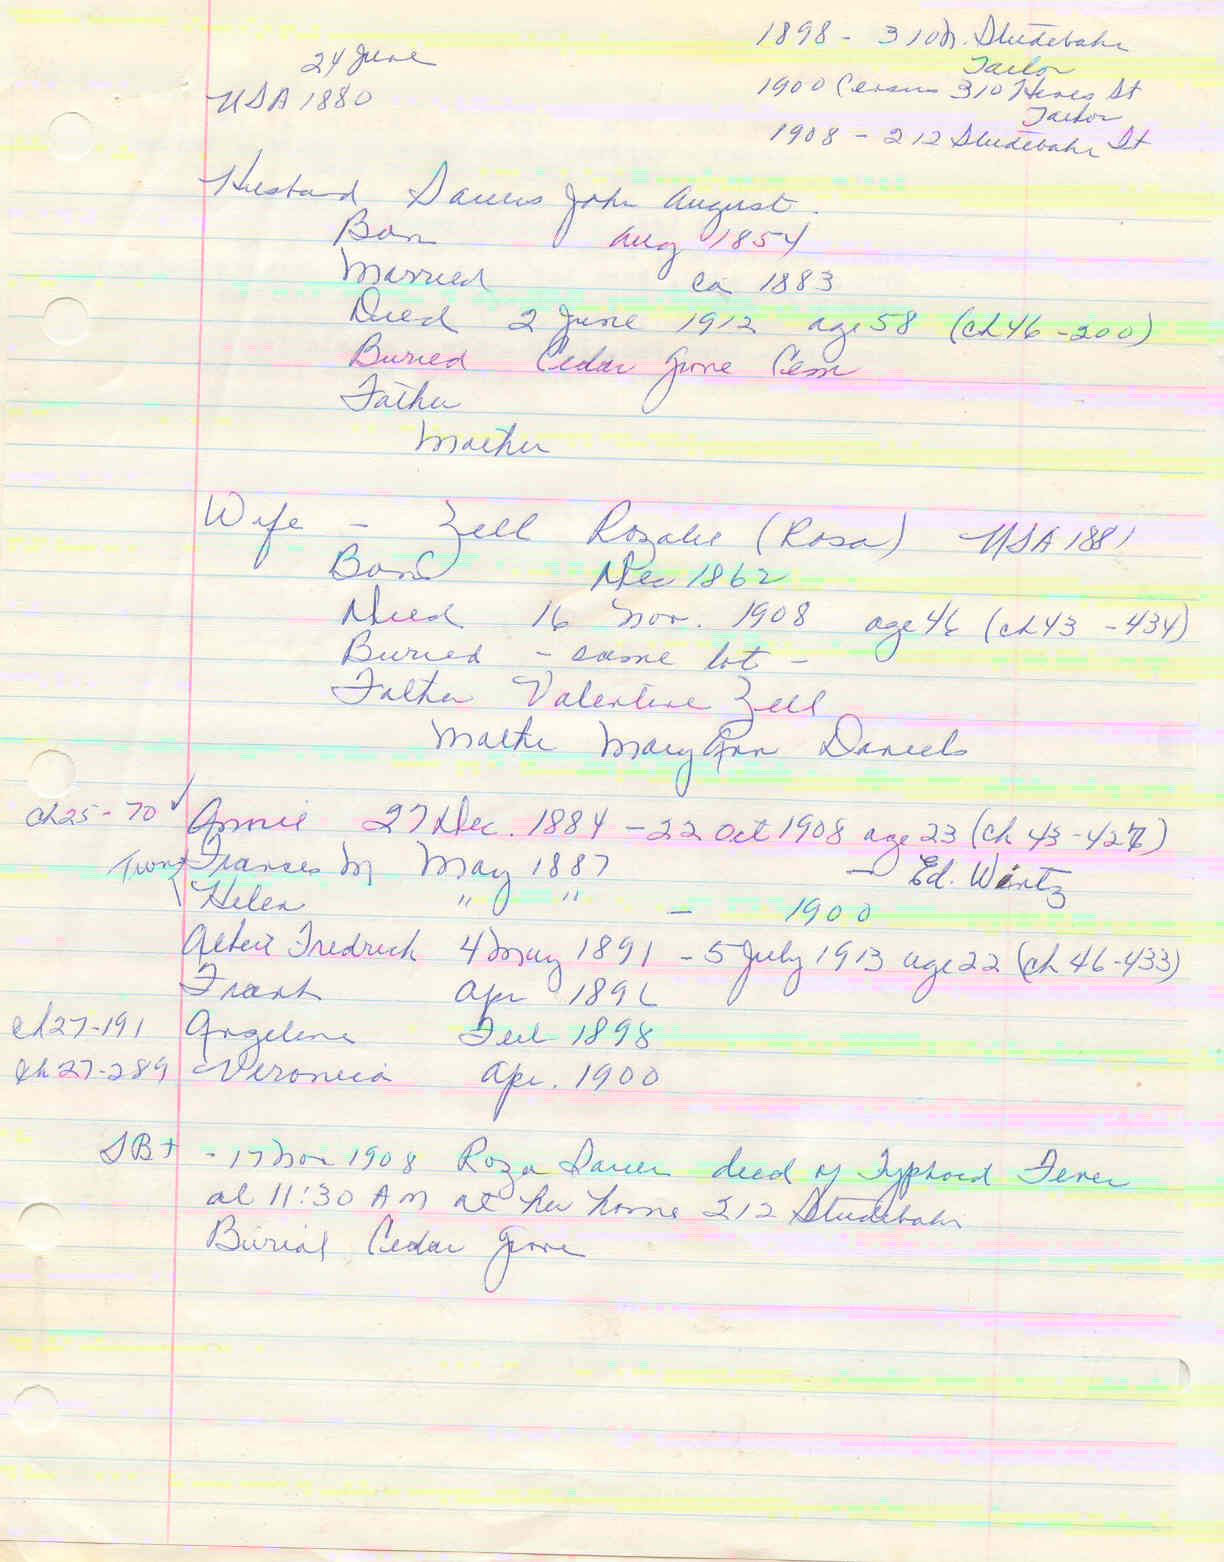 24 June
USA 1880
1898 - 310 N. Studebaker
Tailor
1900 Census 310 St
Tailor
1908 - 212 Studebaker St
Husband John August
Born Aug 1854
Married ca 1883
Died 2 June 1912 age 58 (ch 46 - 200)
Buried Cedar Grove Cem
Father
Mother
Wife - Zell Rozalie (Rosa) USA 1881
Born Dec 1862
Died 16 Nov. 1908 age 46 (ch 43 - 434)
Buried - same lot -
Father Valentine Zell
Mother Mary Ann Daniels
ch 25 - 70 ✓ Annie 27 Dec. 1884 - 22 Oct 1908 age 23 (ch 43 - 427)
Twins Frances M May 1887 - Ed. Wintz
Helen " " - 1900
Albert Fredrick 4 May 1891 - 5 July 1913 age 22 (ch 46-433)
Frank Apr
ch 27-191 Angeline Feb 1898
ch 27-289 Veronica Apr. 1900
SBT - 17 Nov 1908 Roza died of Typhoid Fever
at 11:30 AM at her home 212 Studebaker
Burial Cedar Grove